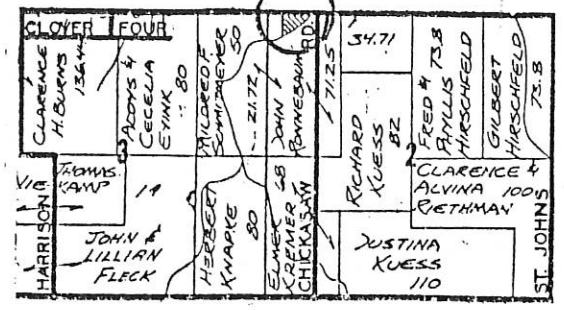 CLOVER FOUR
CLARENCE
H. BURNS
136.44
ALOYS &
CECELIA
EYINK
80
MILDRED F
SCHMITMEYER
50
21.72
JOHN
RONNEBAUM
RD
71.25
34.71
RICHARD
KUESS
82
FRED &
PHYLLIS
HIRSCHFELD
73.8
GILBERT
HIRSCHFELD
73.8
3
2
VIE
THOMAS
KAMP
19
HARRISON
JOHN &
LILLIAN
FLECK
HERBERT
KNAPKE
80
ELMER
KREMER
68
CHICKASAW
CLARENCE &
ALVINA 100
RIETHMAN
JUSTINA
KUESS
110
ST. JOHNS